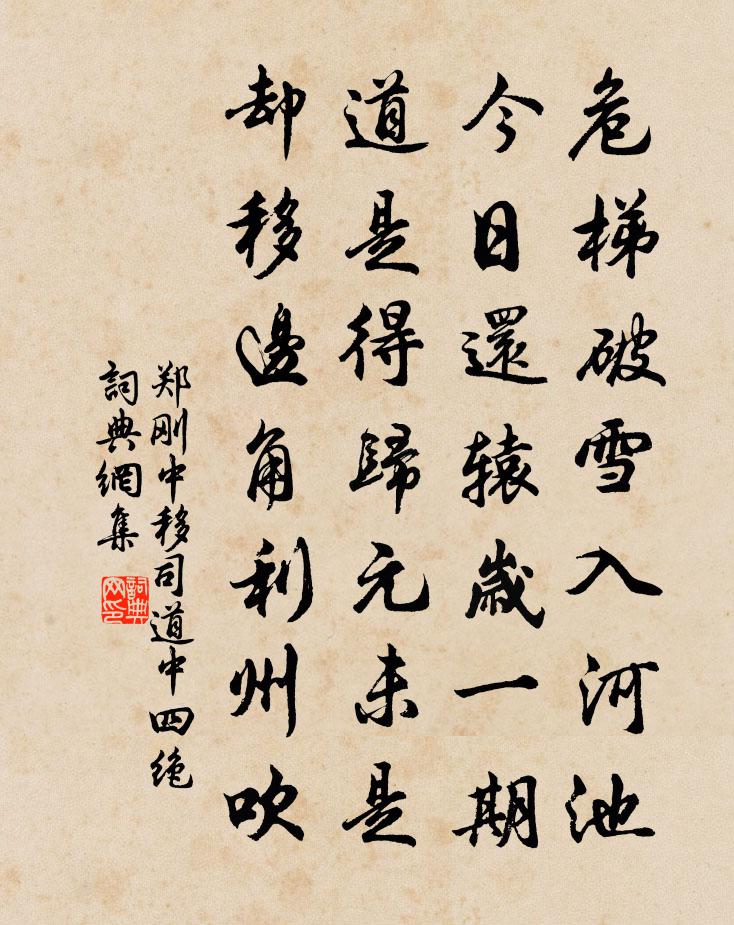 危梯破雪入河池
今日還辕歲一期
道是得歸元未是
却移邊角利州吹
郑刚中移司道中四绝
詞典網集
詞典网印